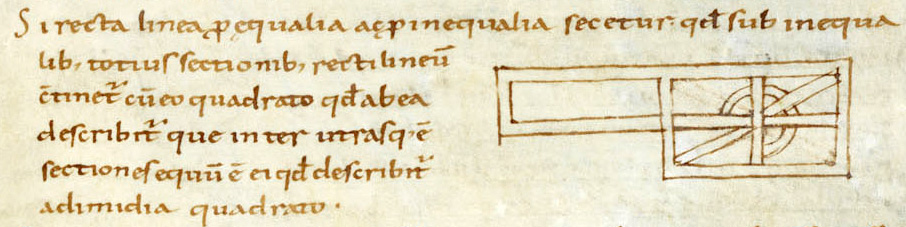 Si recta linea ꝑ ęqualia ac ꝑ inequalia secetur. qđ sub inequa
lib; totius sectionib; rectilineū
ētinet̄ cū eo quadrato qđ ab ea
describit̄ que inter utrasq; ē
sectiones equū ē ei qđ describit̄
a dimidia quadrato.